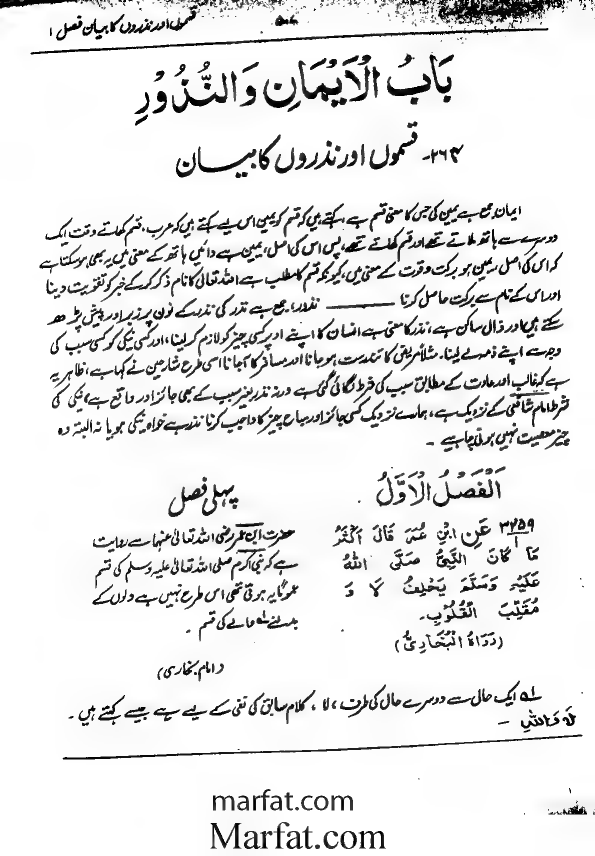 قسموں اور نذروں کا بیان فصل ۱
بَابُ الْاَيْمَانِ وَالنُّذُوْرِ
۲۶۴۔ قسموں اور نذروں کا بیان
ایمان جمع ہے یمین کی جس کا معنی قسم ہے، کہتے ہیں کہ قسم کو یمین اس لیے کہتے ہیں کہ عرب، قسم کھاتے وقت ایک
دوسرے سے ہاتھ ملاتے تھے اور قسم کھاتے تھے، پس اس کی اصل، یمین ہے دائیں ہاتھ کے معنی میں یہ بھی ہو سکتا ہے
کہ اس کی اصل، یمن ہو برکت و قوت کے معنی میں، کیونکہ قسم کا مطلب ہے اللہ تعالیٰ کا نام ذکر کر کے خبر کو تقویت دینا
اور اس کے نام سے برکت حاصل کرنا ــــــــ نذور، جمع ہے نذر کی نذر کے نون پر زبر اور پیش پڑھ
سکتے ہیں اور ذال ساکن ہے، نذر کا معنی ہے انسان کا اپنے اوپر کسی چیز کو لازم کر لینا، اور کسی نیکی کو کسی سبب کی
وجہ سے اپنے ذمہ لے لینا۔ مثلاً مریض کا تندرست ہو جانا اور مسافر کا آجانا اسی طرح شارحین نے کہا ہے، ظاہر یہ
ہے کہ غالب اور عادت کے مطابق سبب کی شرط لگائی گئی ہے ورنہ نذر بغیر سبب کے بھی جائز اور واقع ہے، نیکی کی
شرط امام شافعی کے نزدیک ہے، ہمارے نزدیک کسی جائز اور مباح چیز کا واجب کرنا نذر ہے خواہ نیکی ہو یا نہ البتہ وہ
چیز معصیت نہیں ہونی چاہیے۔
اَلْفَصْلُ الْاَوَّلُ
۳۲۵۹ عَنِ ابْنِ عُمَرَ قَالَ اَكْثَرُ
۱
مَا كَانَ النَّبِىُّ صَلَّى اللّٰهُ
عَلَيْهِ وَسَلَّمَ يَحْلِفُ لَا وَ
مُقَلِّبِ الْقُلُوْبِ۔
(رَوَاهُ الْبُخَارِىُّ)
پہلی فصل
حضرت ابن عمر رضی اللہ تعالیٰ عنہما سے روایت
ہے کہ نبی اکرم صلی اللہ تعالیٰ علیہ وسلم کی قسم
عموماً یہ ہوتی تھی اس طرح نہیں ہے دلوں کے
بدلنے لہ والے کی قسم۔
(امام بخاری)
لہ ایک حال سے دوسرے حال کی طرف، لا، کلام سابق کی نفی کے لیے ہے جیسے کہتے ہیں۔
لَا وَاللّٰهِ ــ
marfat.com
Marfat.com